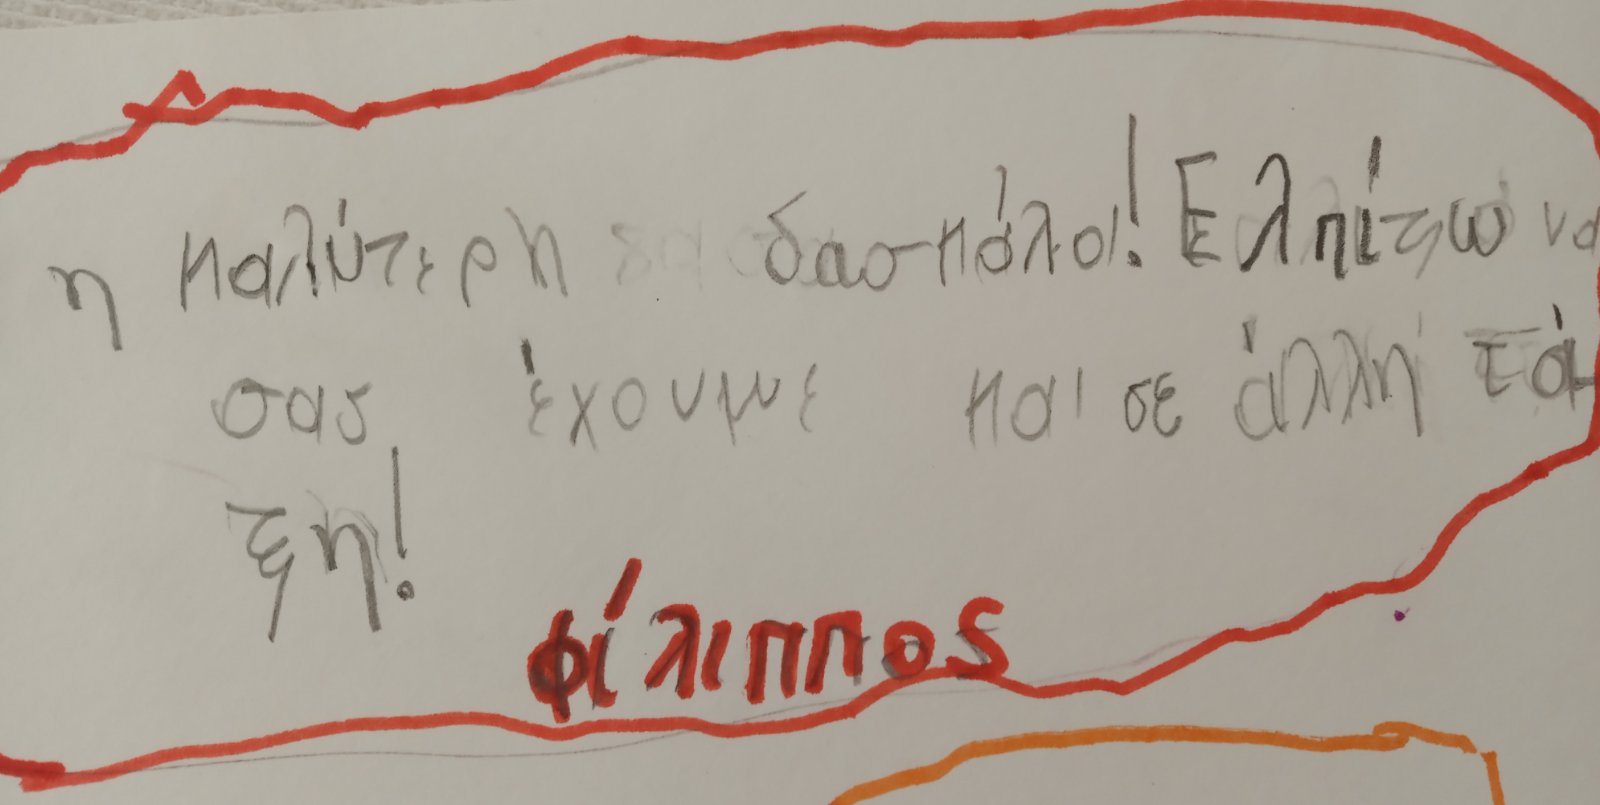 η καλύτερη δασκάλα! Ελπίζω να
σας έχουμε και σε άλλη τά
ξη!
φίλιππος